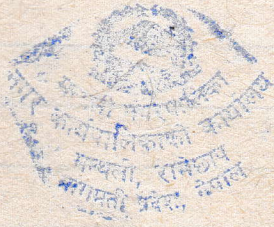 नगरपालिका
कार्यपालिकाको कार्यालय
मन्थली, रामेछाप
बागमती प्रदेश, नेपाल